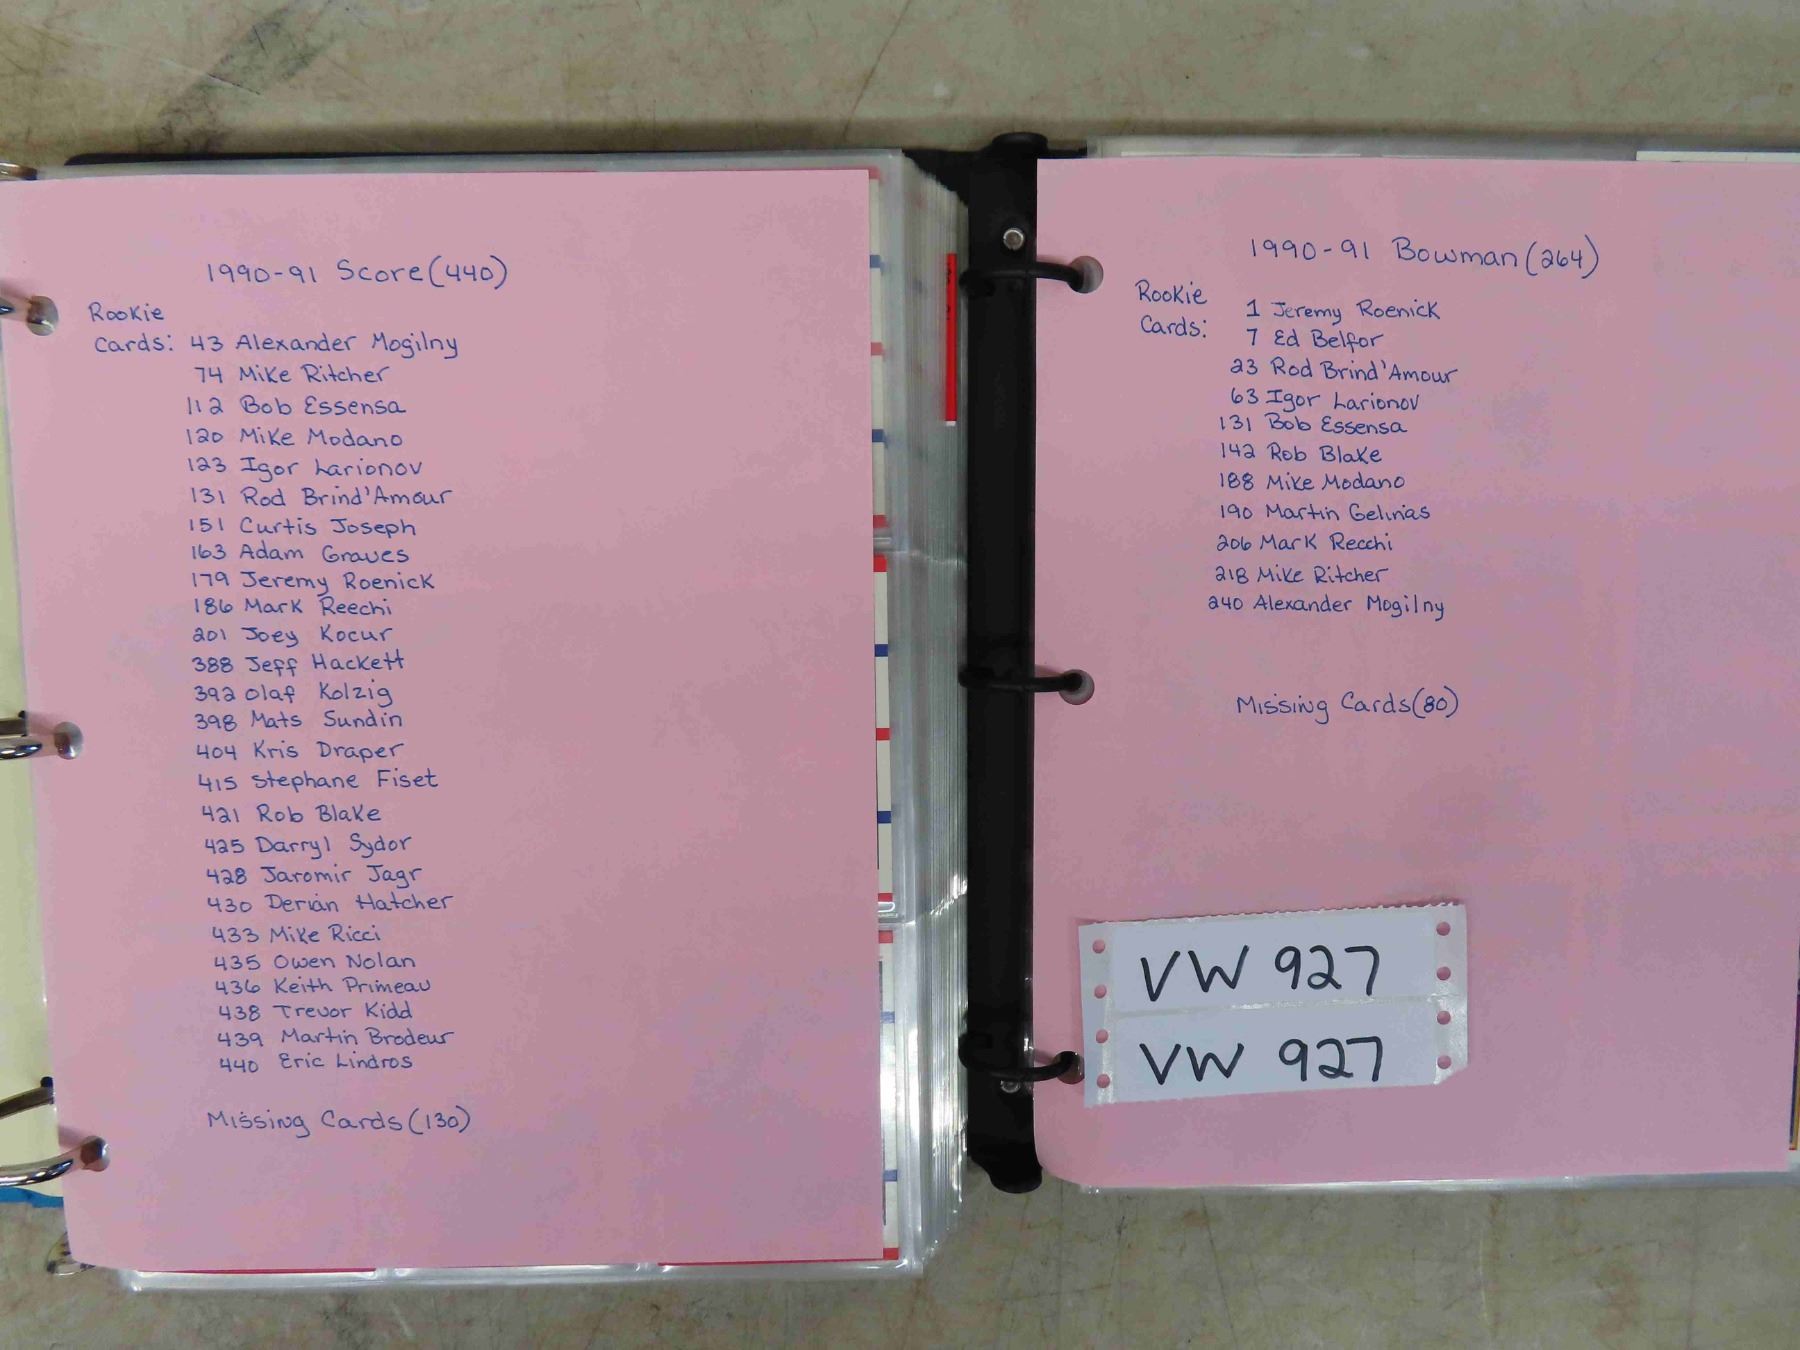 1990-91 Score (440)
Rookie
Cards: 43 Alexander Mogilny
74 Mike Ritcher
112 Bob Essensa
120 Mike Modano
123 Igor Larionov
131 Rod Brind'Amour
151 Curtis Joseph
163 Adam Graves
179 Jeremy Roenick
186 Mark Reechi
201 Joey Kocur
388 Jeff Hackett
392 Olaf Kolzig
398 Mats Sundin
404 Kris Draper
415 Stephane Fiset
421 Rob Blake
425 Darryl Sydor
428 Jaromir Jagr
430 Derian Hatcher
433 Mike Ricci
435 Owen Nolan
436 Keith Primeau
438 Trevor Kidd
439 Martin Brodeur
440 Eric Lindros
Missing Cards (130)
1990-91 Bowman (264)
Rookie
Cards: 1 Jeremy Roenick
7 Ed Belfor
23 Rod Brind'Amour
63 Igor Larionov
131 Bob Essensa
142 Rob Blake
188 Mike Modano
190 Martin Gelinas
206 Mark Recchi
218 Mike Ritcher
240 Alexander Mogilny
Missing Cards (80)
VW 927
VW 927